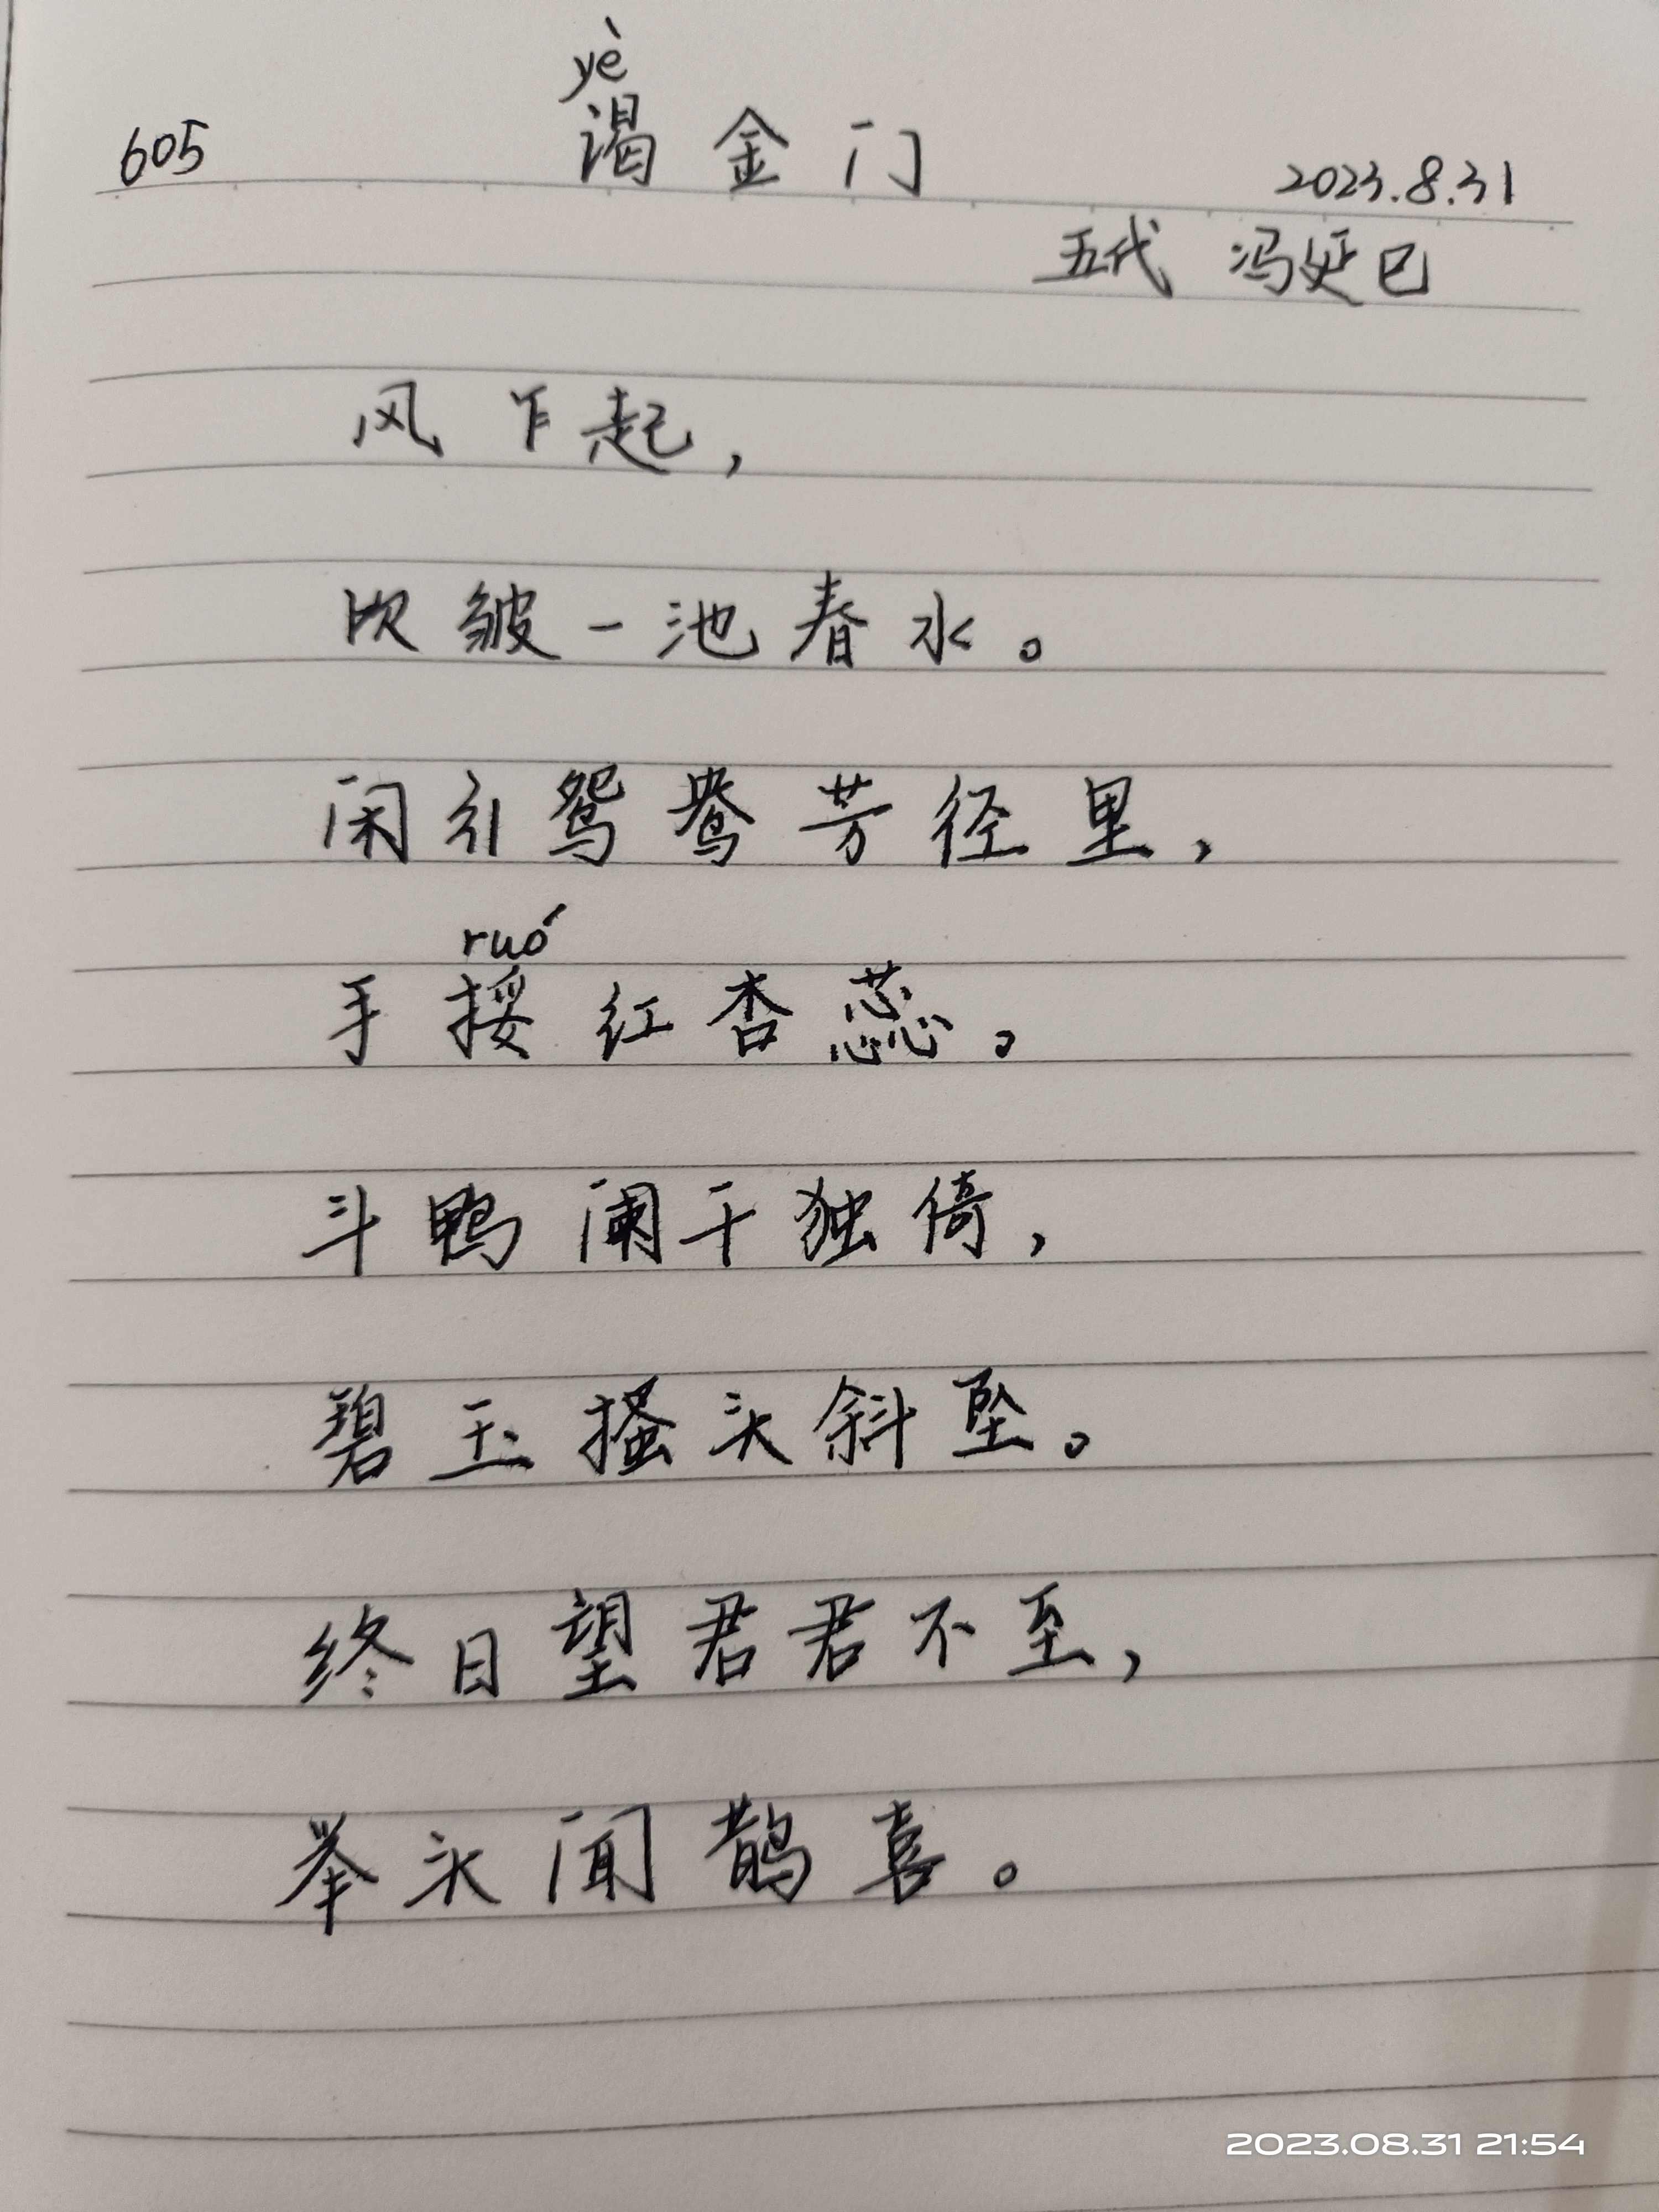 yè
605 谒金门 2023.8.31
五代 冯延巳
风乍起，
吹皱一池春水。
闲引鸳鸯芳径里，
ruó
手挼红杏蕊。
斗鸭阑干独倚，
碧玉搔头斜坠。
终日望君君不至，
举头闻鹊喜。
2023.08.31 21:54